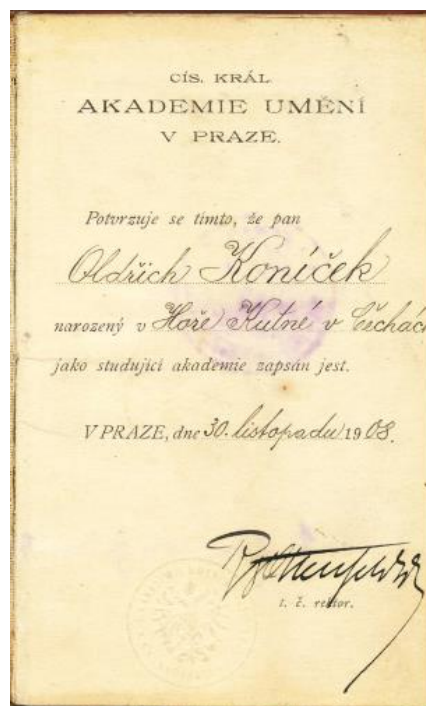 CÍS. KRÁL.
AKADEMIE UMĚNÍ
V PRAZE.
Potvrzuje se tímto, že pan
Oldřich Koníček
narozený v Hoře Kutné v Čechách
jako studující akademie zapsán jest.
V PRAZE, dne 30. listopadu 1908.
t. č. rektor.